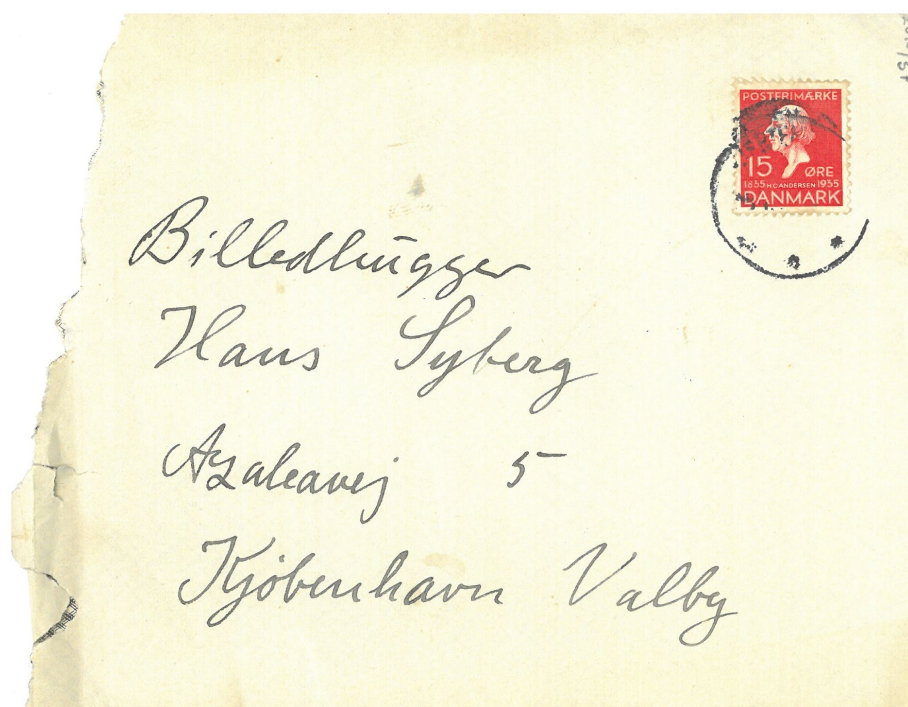 POSTFRIMÆRKE
15 ØRE
1835 H.C. ANDERSEN 1935
DANMARK
Billedhugger
Hans Syberg
Azaleavej 5
Kjøbenhavn Valby